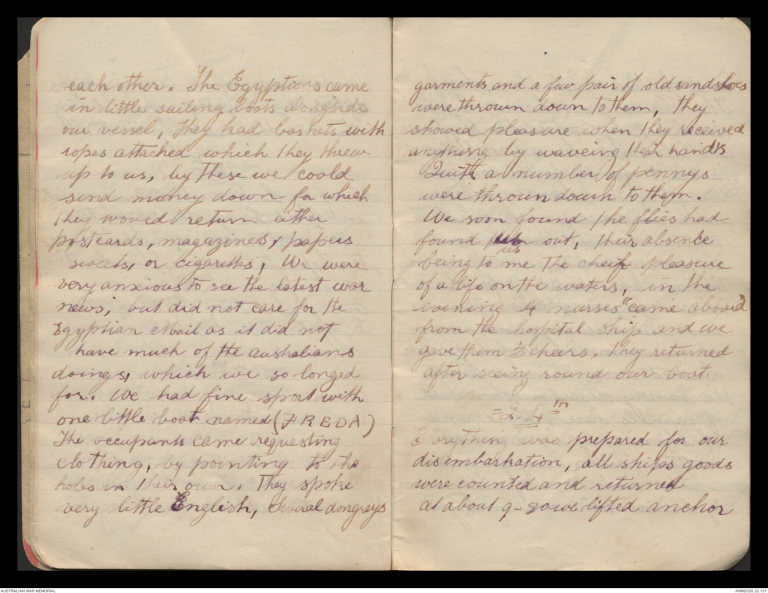 each other. The Egyptions came
in little sailing boats alongside
our vessel, They had baskets with
ropes attached which they threw
up to us, by these we coold
send money down for which
they would return either
postcards, magazines, papers
sweets, or cigaretts; We were
very anxious to see the latest war
news, but did not care for the
Egyptian Mail as it did not
have much of the australians
doings, which we so longed
for. We had fine sport with
one little boat named (FREDA)
The occupants came requesting
clothing, by pointing to the
holes in their own. They spoke
very little English, Several dongreys
garments and a few pair of old sandshoes
were thrown down to them, they
showed pleasure when they received
anything by waveing their hands
Quite a number of pennys
were thrown down to them.
We soon found the flies had
found us out, their absence
being to me the cheif pleasure
of a life on the waters, in the
evening 4 nurses "came aboard"
from the hospital ship and we
gave them 3 cheers. They returned
after seeing round our boat.
=24th
Everything was prepared for our
disembarkation, all ships goods
were counted and returned
at about 9-30 we lifted anchor
AUSTRALIAN WAR MEMORIAL